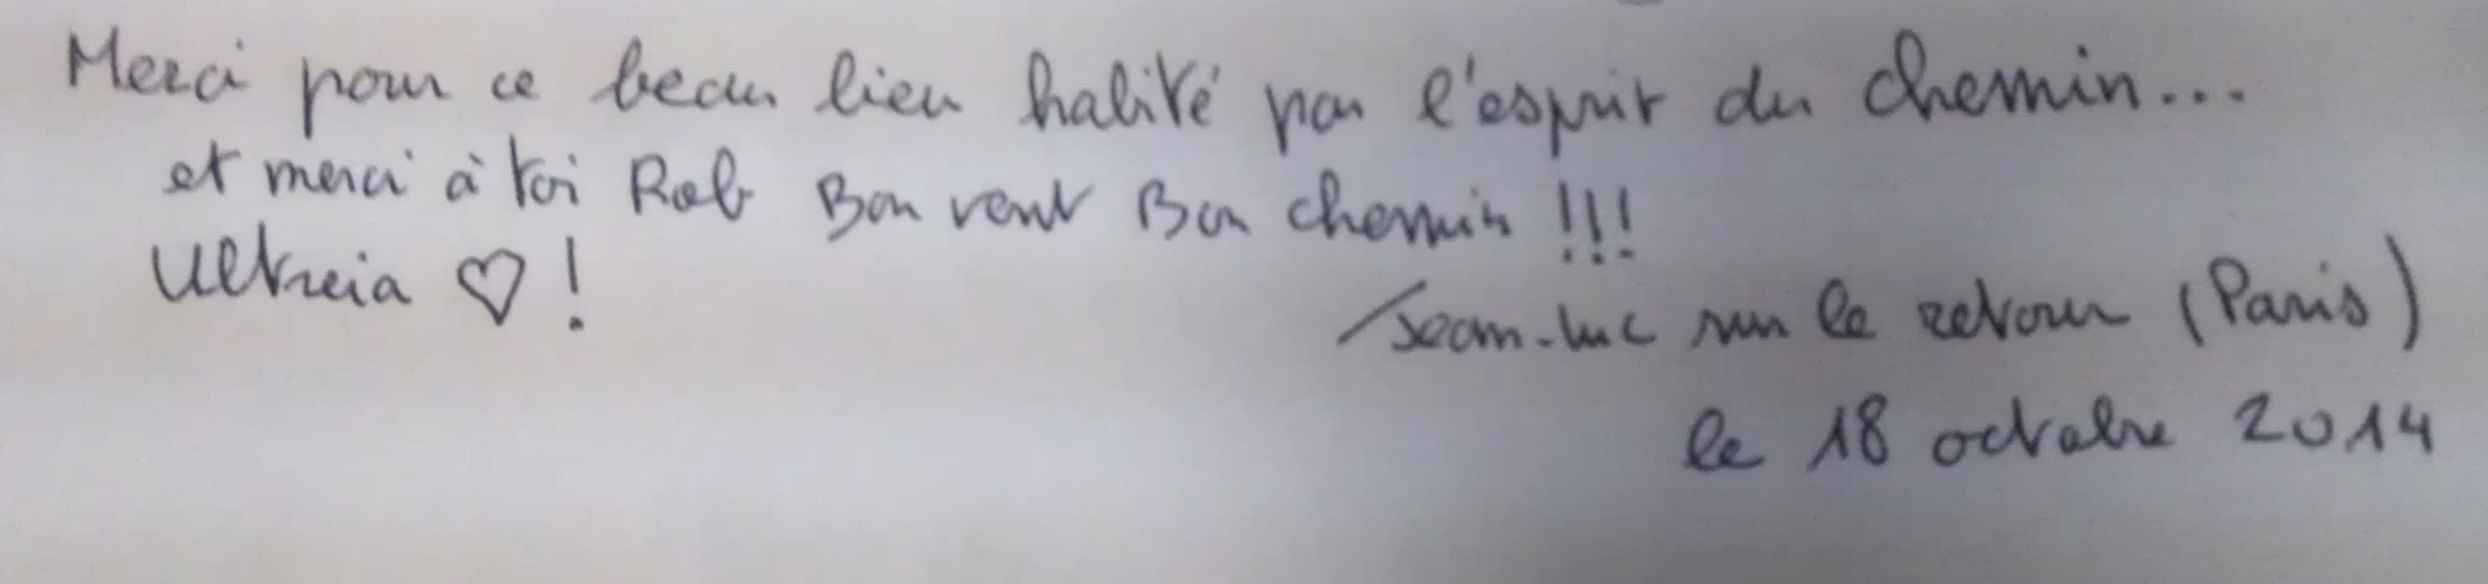 Merci pour ce beau lieu habité par l'esprit du chemin...
et merci à toi Rob Bon vent Bon chemin !!!
Ultreia ♡ !
Jean-Luc sur le retour (Paris)
le 18 octobre 2014